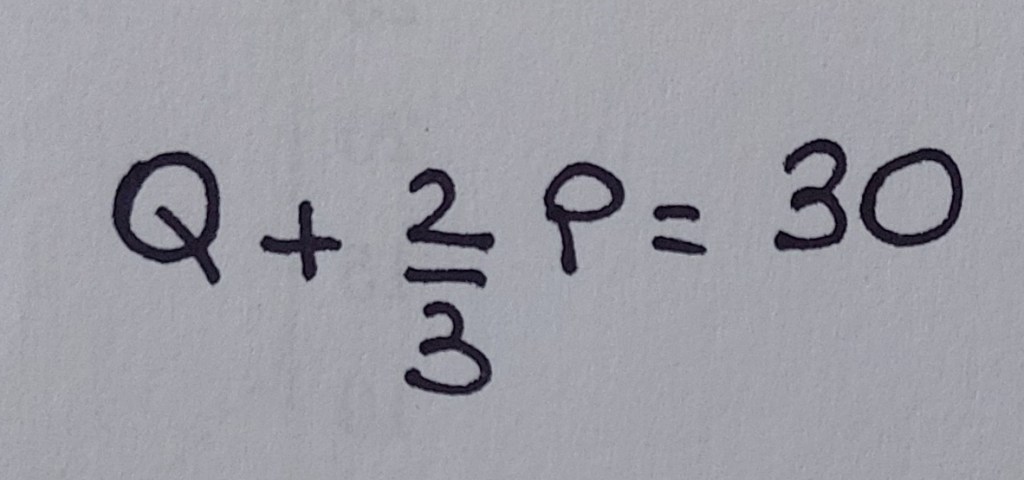 Q + 2/3 P = 30